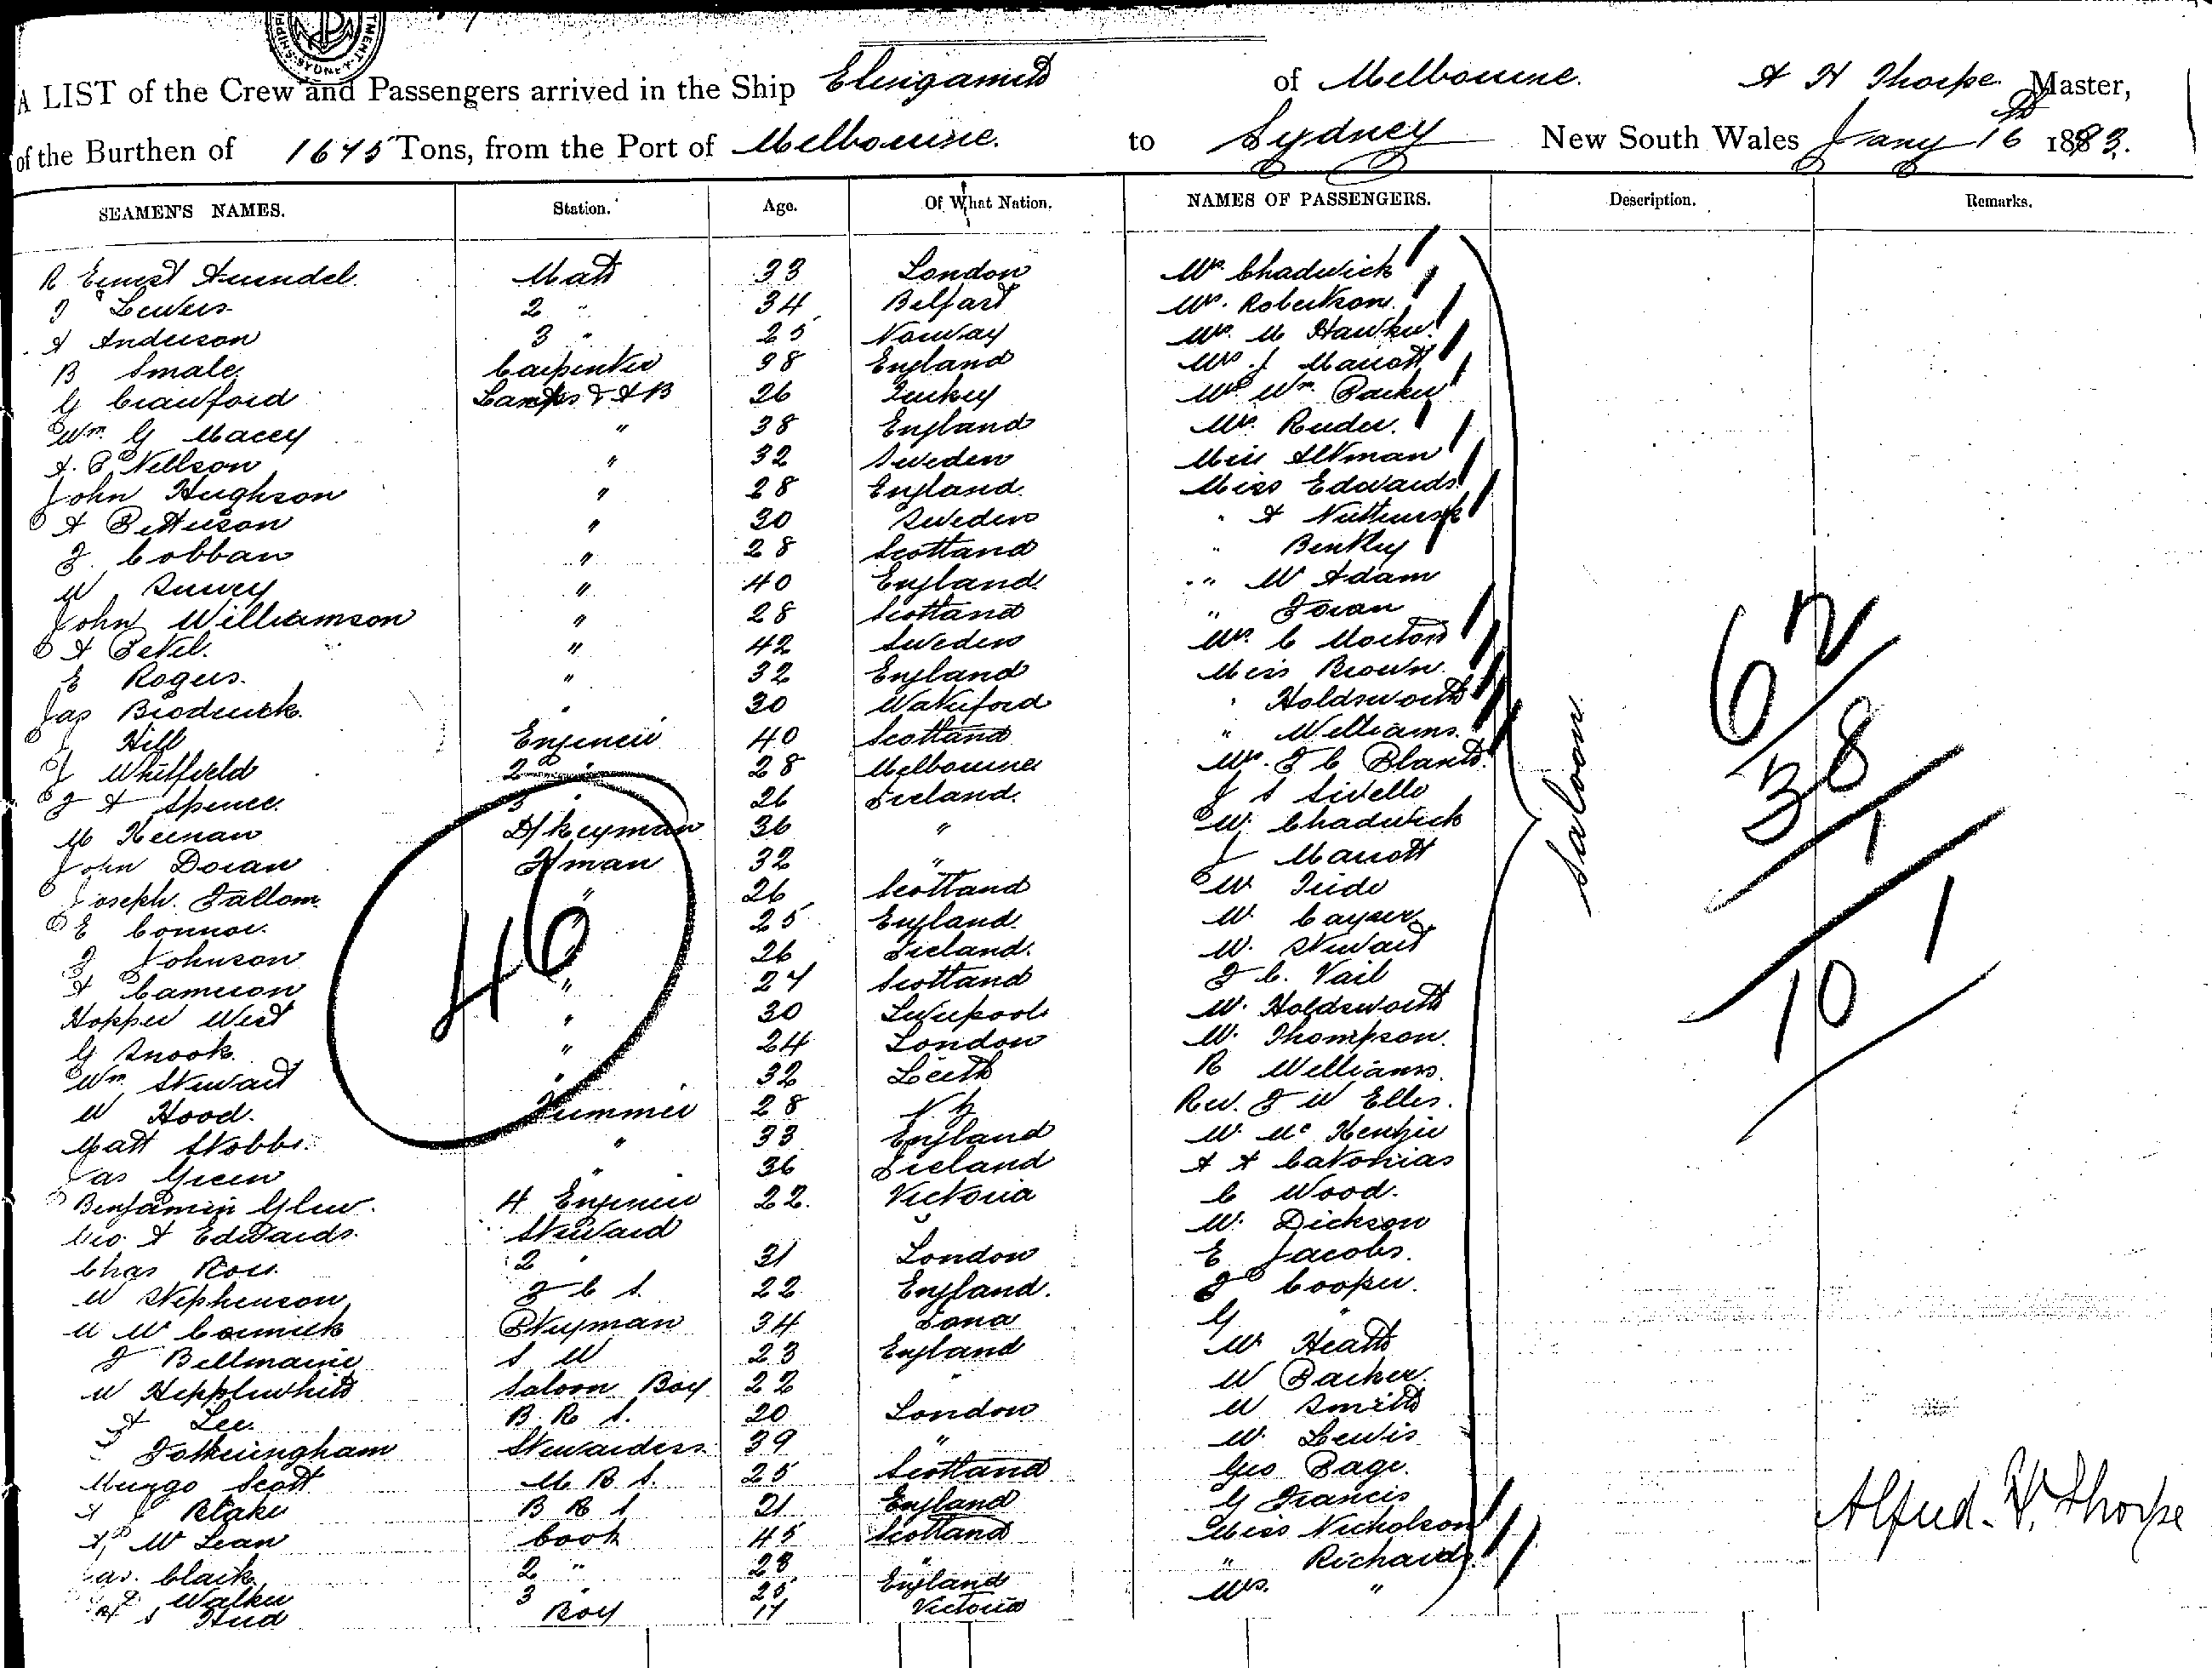 A LIST of the Crew and Passengers arrived in the Ship Elingamite of Melbourne. A H Thorpe Master,
of the Burthen of 1675 Tons, from the Port of Melbourne. to Sydney New South Wales Jany 16th 1883.
SEAMEN'S NAMES. Station. Age. Of What Nation. NAMES OF PASSENGERS. Description. Remarks.
R Ernest Arundel Mate 33 London Mrs. Chadwick
Lewers 2 " 34 Belfast Mrs. Robertson
A Anderson 3 " 25 Norway Mrs. M Hawker
B Smale Carpenter 38 England Mrs. J Marrott
G Crawford Lamps & AB 26 Turkey Mrs Wm. Parker
Wm. G Macey " 38 England Mrs. Reuder.
A. P Nellson " 32 Sweden Miss Altman
John Hughson " 28 England Miss Edwards
A Petterson " 30 Sweden " A
J. Cobban " 28 Scotland " Bentley
W " 40 England " W Adam
John Williamson " 28 Scotland " Doran
A Petel. " 42 Sweden Mrs. C Morton
E Rogers. " 32 England Miss Brown.
Jas Broderick. " 30 Waterford " Holdsworth
J Hill Engineer 40 Scotland " Williams.
J Whitfield 2d " 28 Melbourne Mrs. F C
J A Spence. 3 " 26 Ireland. J S
M Keenan D/keyman 36 " W. Chadwick
John Doran Fman 32 " J Marrott
Joseph Fallom " 26 Scotland W
E Connor. " 25 England. W. Cayser
J Johnson 26 Ireland. W. Stewart
A Cameron " 27 Scotland F C. Vail
Hopper West " 30 Liverpool W. Holdsworth
G Snook " 24 London W. Thompson.
Wm. Stewart " 32 Leith R Williams.
W Hood. Trimmer 28 N. Z Rev. F W Ellis.
Matt Stobbs. " 33 England W. Mc Kenzie
Jas Green " 36 Ireland A A Catonias
Benjamin Glew. 4 Engineer 22. Victoria C Wood.
Geo A Edwards. Steward " W. Dickson
Chas Ross. 2 " 31 London E Jacobs.
W Stephenson F C S. 22 England. J Cooper.
M Mc Cormick Ptryman 34 Iona G "
J Bellmaine S W 23 England W Heath
W Hepplewhite Saloon Boy 22 " W Parker.
A Lee. B. R S. 20 London W Smith
J Fotheringham Stewardess 39 " W. Lewis
Mungo Scott M B S. 25 Scotland Geo Page.
A J Blake B R S 21 England G Francis
A, Mc Lean Cook 45 Scotland Miss Nicholson
Jas. Clark 2 " 28 " " Richards
Walker 3 " 25 England Mrs. "
S Hird Boy 17 Victoria
Saloon
46
62
38
1
101
Alfred. H. Thorpe